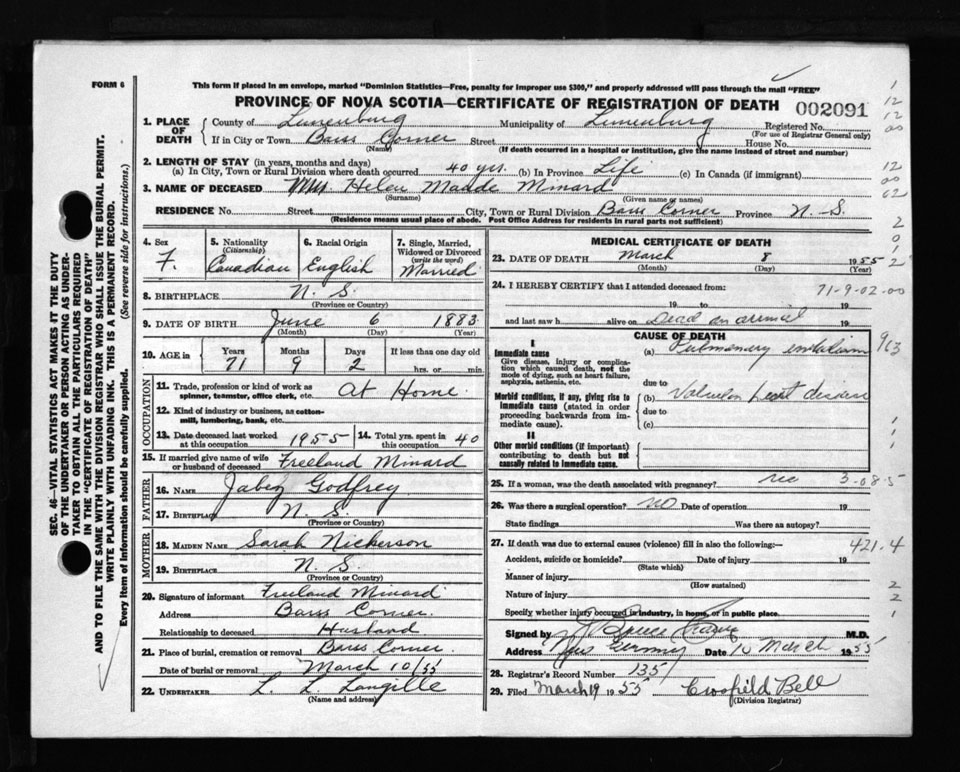 FORM 6
This form if placed in an envelope, marked "Dominion Statistics—Free, penalty for improper use $300," and properly addressed will pass through the mail "FREE"
PROVINCE OF NOVA SCOTIA—CERTIFICATE OF REGISTRATION OF DEATH 002091
1. PLACE OF DEATH
County of Lunenburg Municipality of Lunenburg Registered No.
(For use of Registrar General only)
If in City or Town Barss Corner Street House No.
(Name) (If death occurred in a hospital or institution, give the name instead of street and number)
2. LENGTH OF STAY (in years, months and days)
(a) In City, Town or Rural Division where death occurred 40 yrs. (b) In Province Life (c) In Canada (if immigrant)
3. NAME OF DECEASED Mrs. Helen Maude Minard
(Surname) (Given name or names)
RESIDENCE No. Street City, Town or Rural Division Barss Corner Province N.-S.
(Residence means usual place of abode. Post Office Address for residents in rural parts not sufficient)
4. Sex F.
5. Nationality (Citizenship) Canadian
6. Racial Origin English
7. Single, Married, Widowed or Divorced (write the word) Married
8. BIRTHPLACE N. S.
(Province or Country)
9. DATE OF BIRTH June 6 1883
(Month) (Day) (Year)
10. AGE in Years Months Days If less than one day old
71 9 2 hrs. or min.
OCCUPATION
11. Trade, profession or kind of work as spinner, teamster, office clerk, etc. At Home
12. Kind of industry or business, as cotton-mill, lumbering, bank, etc.
13. Date deceased last worked at this occupation 1955 14. Total yrs. spent in this occupation 40
15. If married give name of wife or husband of deceased Freeland Minard
FATHER
16. NAME Jabez Godfrey
17. BIRTHPLACE N. S.
(Province or Country)
MOTHER
18. MAIDEN NAME Sarah Nickerson
19. BIRTHPLACE N. S.
(Province or Country)
20. Signature of informant Freeland Minard
Address Barss Corner.
Relationship to deceased Husband
21. Place of burial, cremation or removal Barss Corner.
Date of burial or removal March 10/55
22. UNDERTAKER L. L. Langille
(Name and address)
MEDICAL CERTIFICATE OF DEATH
23. DATE OF DEATH March 8 1955
(Month) (Day) (Year)
24. I HEREBY CERTIFY that I attended deceased from: 71-9-02-00
19 to 19
and last saw h alive on Dead on arrival 19
CAUSE OF DEATH
I
Immediate cause
Give disease, injury or complication which caused death, not the mode of dying, such as heart failure, asphyxia, asthenia, etc.
(a) Pulmonary embolism
due to
Morbid conditions, if any, giving rise to immediate cause (stated in order proceeding backwards from immediate cause).
(b) Valvular heart disease
due to
(c)
II
Other morbid conditions (if important) contributing to death but not causally related to immediate cause.
25. If a woman, was the death associated with pregnancy? no 3-08-5
26. Was there a surgical operation? no Date of operation 19
State findings Was there an autopsy?
27. If death was due to external causes (violence) fill in also the following:— 421.4
Accident, suicide or homicide? Date of injury 19
(State which)
Manner of injury
(How sustained)
Nature of injury
Specify whether injury occurred in industry, in home, or in public place.
Signed by Bruce M.D.
Address New Germany Date 10 March 1955
28. Registrar's Record Number 135
29. Filed March 19 1955 Crofield Bell
(Division Registrar)
SEC. 46—VITAL STATISTICS ACT MAKES IT THE DUTY
OF THE UNDERTAKER OR PERSON ACTING AS UNDER-
TAKER TO OBTAIN ALL THE PARTICULARS REQUIRED
IN THE "CERTIFICATE OF REGISTRATION OF DEATH"
AND TO FILE THE SAME WITH THE DIVISION REGISTRAR WHO SHALL ISSUE THE BURIAL PERMIT.
WRITE PLAINLY WITH UNFADING INK. THIS IS A PERMANENT RECORD.
Every item of information should be carefully supplied. (See reverse side for instructions.)
1
12
12
00
12
00
62
2
0
1
2
1
1
1
2
2
1